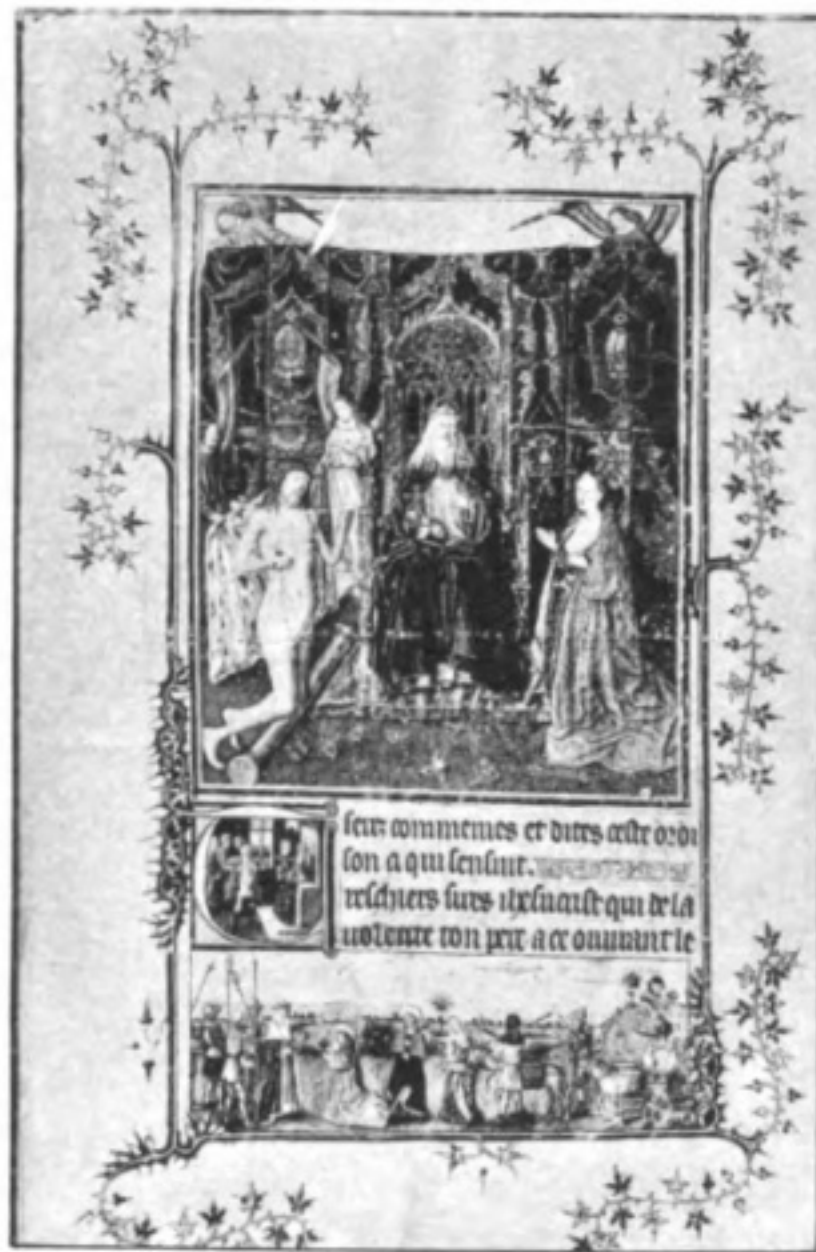 seur commences et dites ceste ordi
son a qui sensuit.
treschiers sires ihesucrist qui de la
uolente ton pere a ce ouurant le